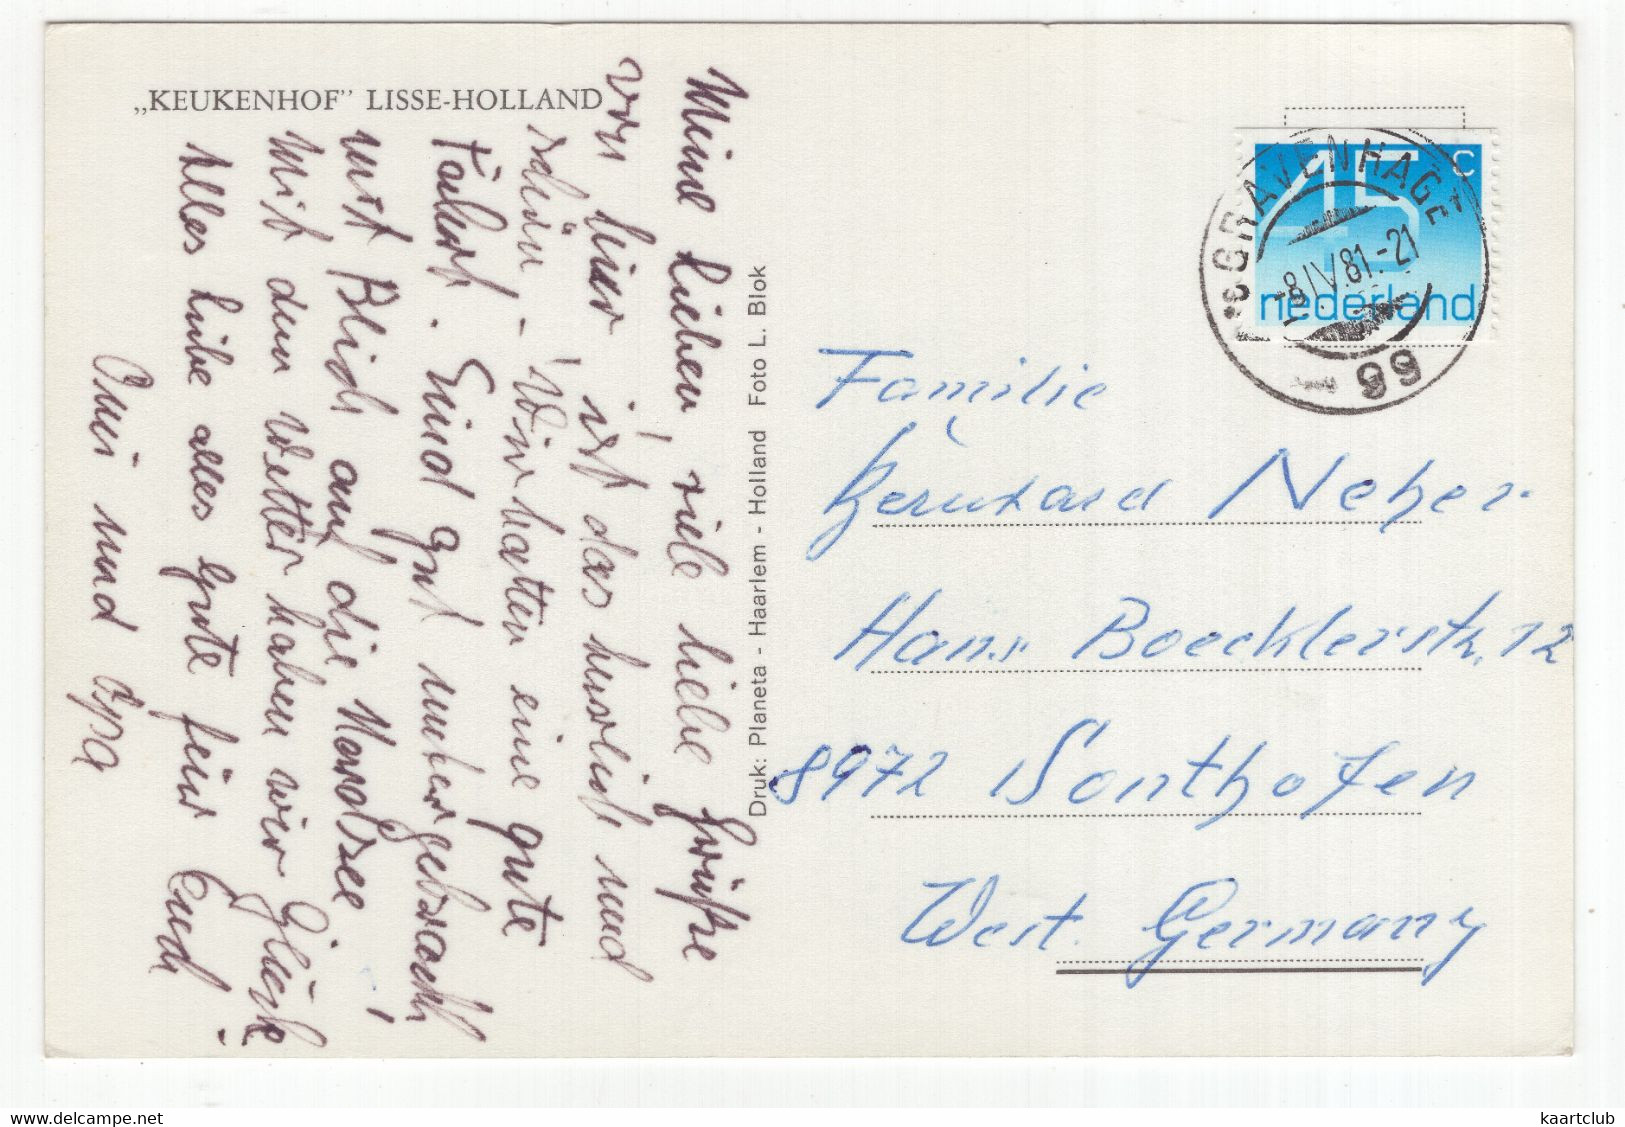 „KEUKENHOF” LISSE-HOLLAND
Meine Lieben, viele liebe Grüße
von hier, ist das herrlich und
schön - Wir hatten eine gute
Fahrt. Sind gut untergebracht,
mit Blick auf die Nordsee
mit dem Wetter haben wir Glück
Alles liebe alles gute für Euch
Omi und Opa
Druk: Planeta - Haarlem - Holland Foto L. Blok
45 c
nederland
'SGRAVENHAGE
-8.IV.81.-21
99
Familie
Bernhard Neher
Hans Boecklerstr. 12
8972 Sonthofen
West. Germany
kaartenmuseum.com
kaartclub